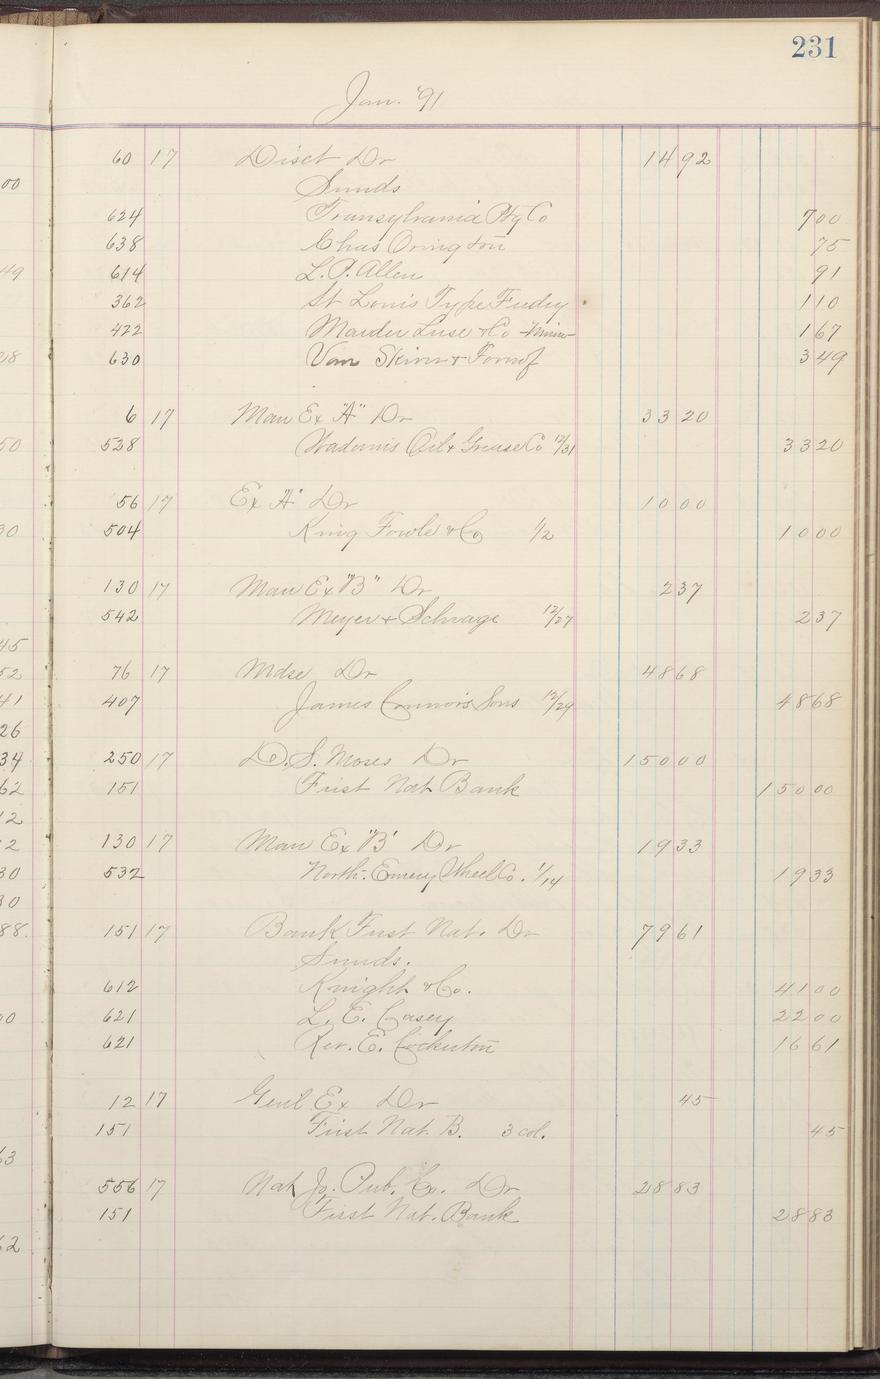 231
Jan. '91
60 17 Disct Dr 14 92
00 Sunds
624 Transylvania Ptg Co 7 00
638 Chas Orington 75
49 614 L. P. Allen 91
362 St Louis Type Fndry 1 10
422 Marder Luse & Co 1 67
28 630 Skinn & 3 49
6 17 Man Ex "A" Dr 33 20
50 528 Wadams Oil & Grease Co 12/31 33 20
56 17 Ex "A" Dr 10 00
30 504 King Fowle & Co 1/2 10 00
130 17 Man Ex "B" Dr 2 37
542 Meyer & Schrage 12/27 2 37
45
52 76 17 Mdse Dr 48 68
41 407 James Connors Sons 12/29 48 68
26
34 250 17 D. S. Moses Dr 150 00
62 151 First Nat Bank 150 00
12
2 130 17 Man Ex "B" Dr 19 33
30 532 North. Emery Wheel Co. 1/14 19 33
30
88 151 17 Bank First Nat. Dr 79 61
Sunds.
612 Knight & Co. 41 00
00 621 L. E. Casey 22 00
621 Rev. E. Cockerton 16 61
12 17 Genl Ex Dr 45
151 First Nat. B. 3 col. 45
63
556 17 Nat Jo. Pub. Co. Dr 28 83
151 First Nat. Bank 28 83
62